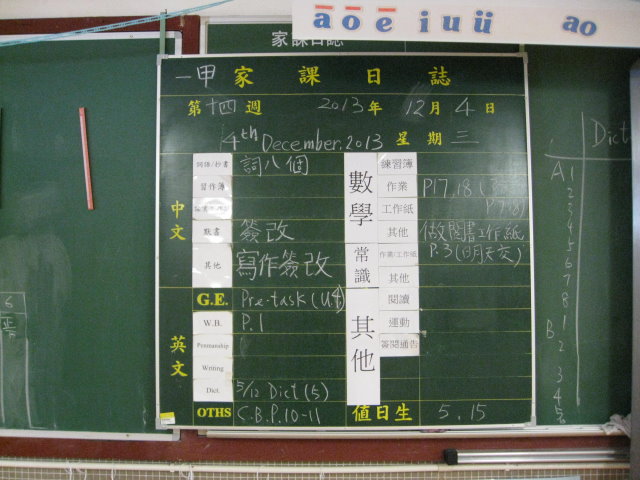 ā ō ē i u ü ao
家課日誌
一甲 家課日誌
第 十四 週 2013 年 12 月 4 日
4th December, 2013 星期 三
中文
詞語/抄書 詞八個
習作簿
默書 簽改
其他 寫作簽改
英文
G.E. Pre-task (U4)
W.B. P.1
Penmanship
Writing
Dict. 5/12 Dict (5)
OTHS C.B.P.10-11
數學
練習簿
作業 P17,18
工作紙
其他 做閱書工作紙
常識
作業/工作紙 P.3
其他
其他
閱讀
運動
簽閱通告
值日生 5, 15
Dict
A 1
2
3
4
5
6
7
8
B 1
2
3
4
5
6